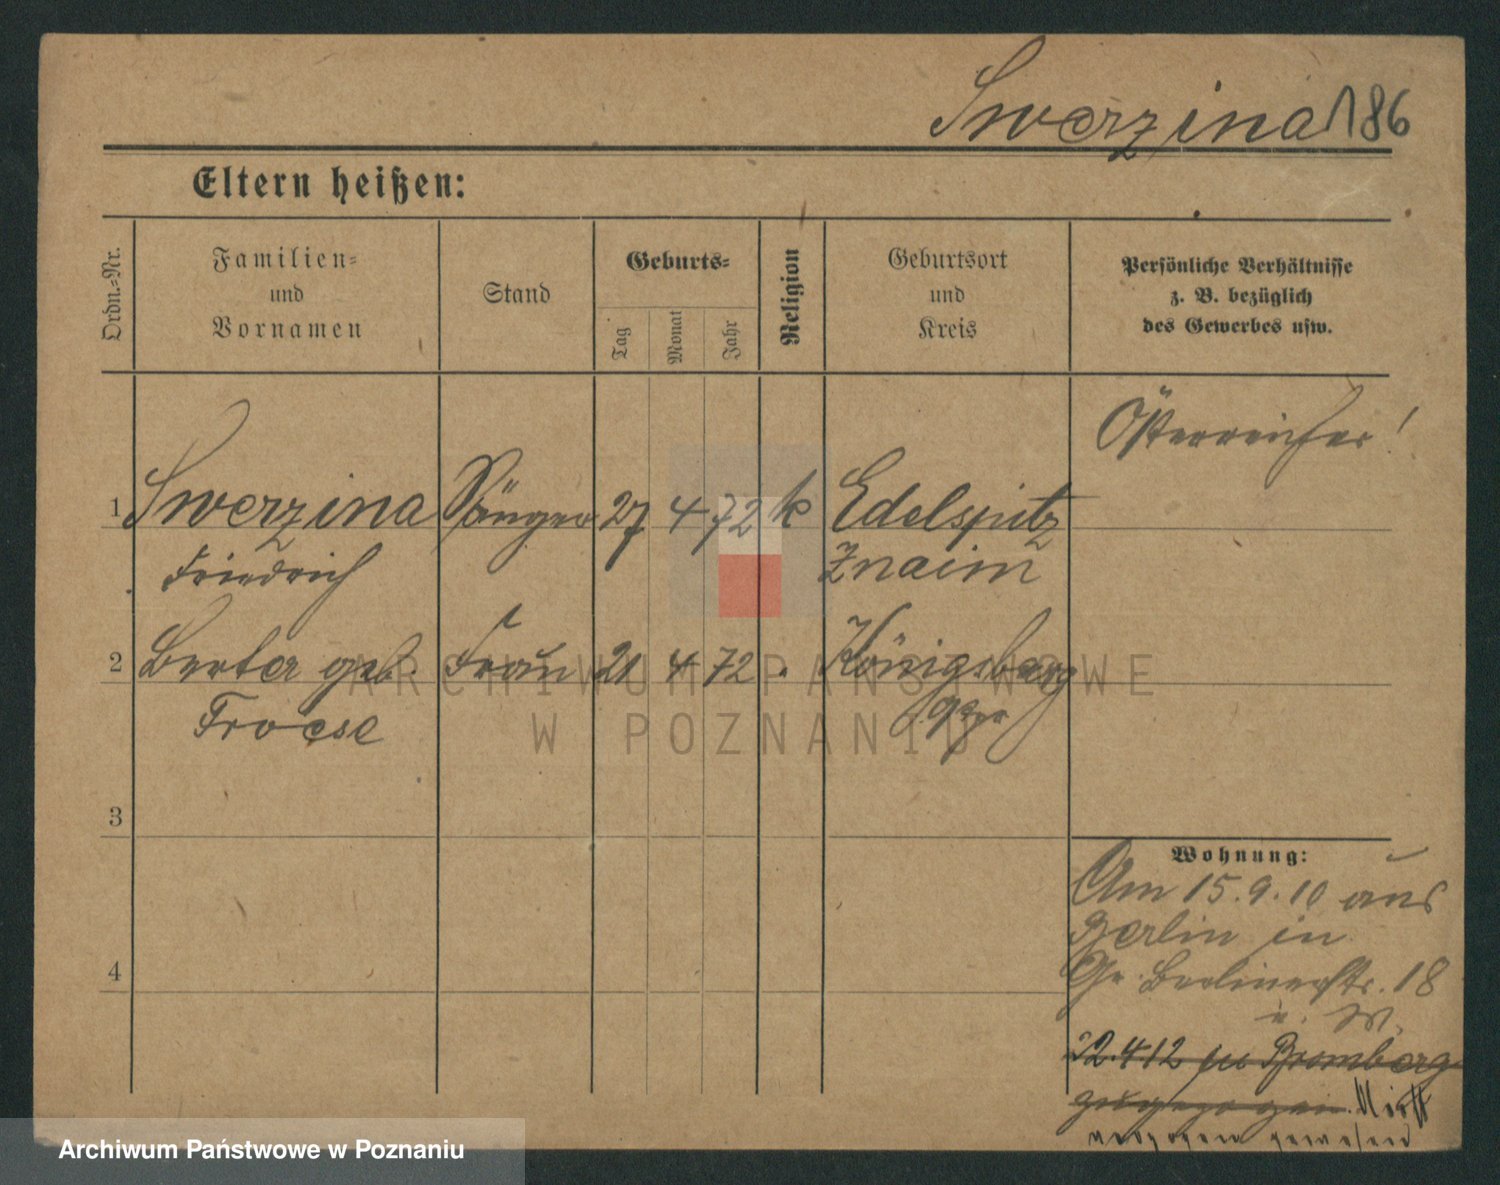 Swerzina 186
Eltern heißen:
Ordn.=Nr.
Familien=
und
Vornamen
Stand
Geburts=
Tag
Monat
Jahr
Religion
Geburtsort
und
Kreis
Persönliche Verhältnisse
z. B. bezüglich
des Gewerbes usw.
Österreicher!
1 Swerzina Sänger 27 4 72 k Edelspitz
Friedrich Znaim
2 Berta geb. Frau 21 4 72 Königsberg
Froese
3
4
Wohnung:
Am 15.9.10 aus
Berlin in
Gr. Berlinerstr. 18
22.4 12 Bromberg
zugezogen. Nicht
verzogen gewesen
ARCHIWUM PAŃSTWOWE
W POZNANIU
Archiwum Państwowe w Poznaniu